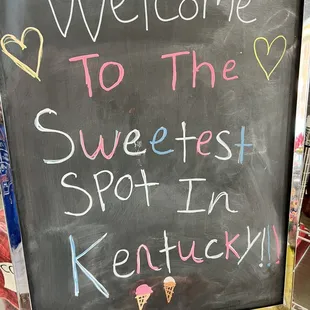 Welcome
To The
Sweetest
Spot In
Kentucky!!!